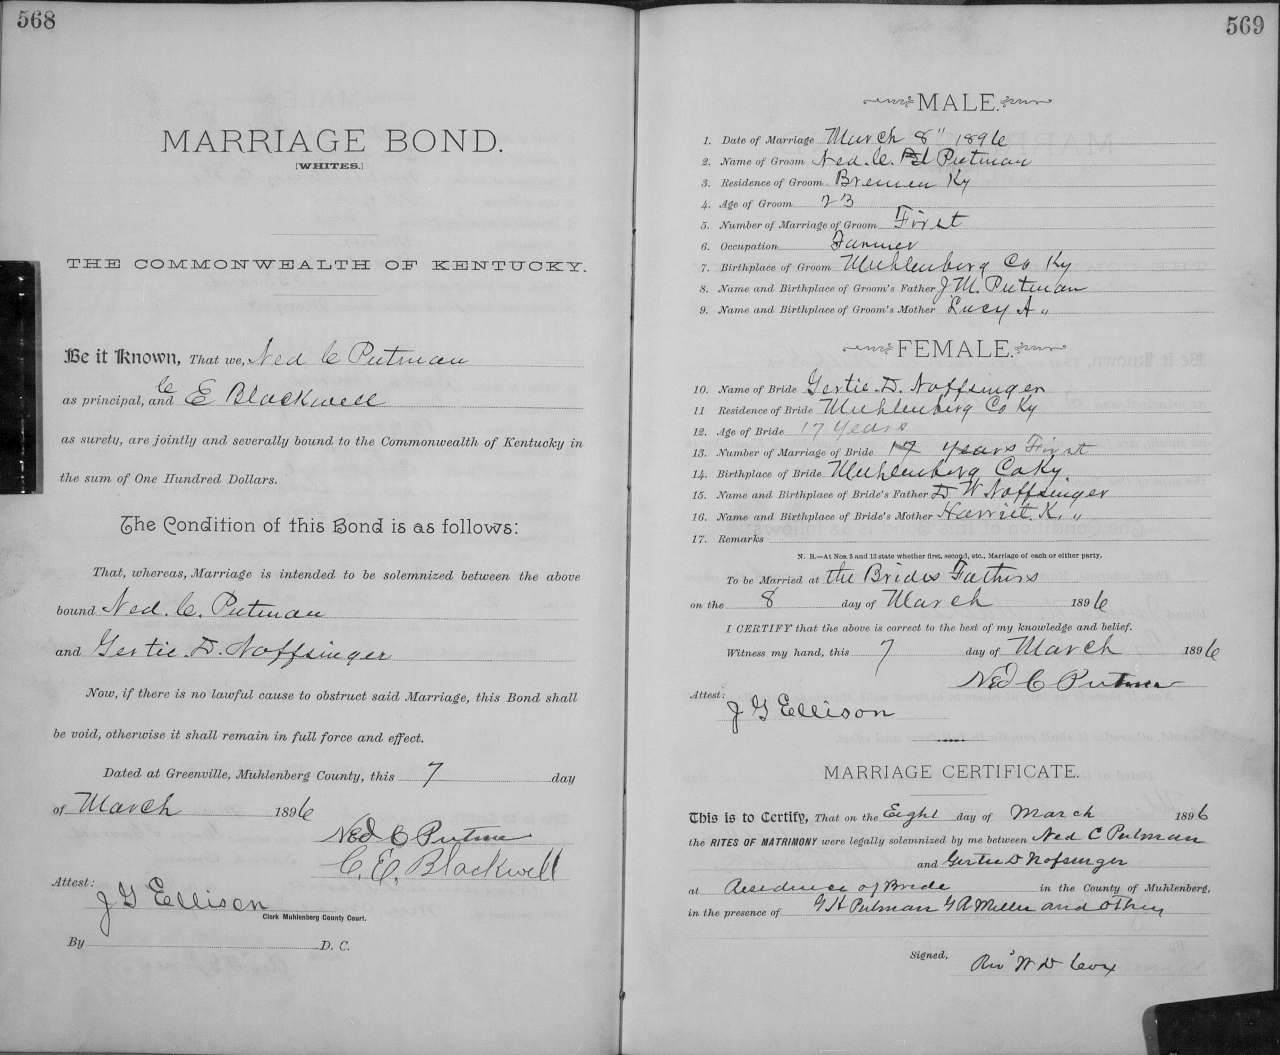 568
MARRIAGE BOND.
[WHITES.]
THE COMMONWEALTH OF KENTUCKY.
Be it Known, That we, Ned C Putman
as principal, and C E Blackwell
as surety, are jointly and severally bound to the Commonwealth of Kentucky in
the sum of One Hundred Dollars.
The Condition of this Bond is as follows:
That, whereas, Marriage is intended to be solemnized between the above
bound Ned. C. Putman
and Gertie. D. Noffsinger
Now, if there is no lawful cause to obstruct said Marriage, this Bond shall
be void, otherwise it shall remain in full force and effect.
Dated at Greenville, Muhlenberg County, this 7 day
of March 1896
Ned C Putman
C. E. Blackwell
Attest:
J G Ellison
Clerk Muhlenberg County Court.
By D. C.
569
MALE.
1. Date of Marriage March 8" 1896
2. Name of Groom Ned. C. Putman
3. Residence of Groom Bremen Ky
4. Age of Groom 23
5. Number of Marriage of Groom First
6. Occupation Farmer
7. Birthplace of Groom Muhlenberg Co Ky
8. Name and Birthplace of Groom's Father J M. Putman
9. Name and Birthplace of Groom's Mother Lucy A "
FEMALE.
10. Name of Bride Gertie. D. Noffsinger
11 Residence of Bride Muhlenberg Co Ky
12. Age of Bride 17 years
13. Number of Marriage of Bride 17 years First
14. Birthplace of Bride Muhlenberg Co Ky
15. Name and Birthplace of Bride's Father D W Noffsinger
16. Name and Birthplace of Bride's Mother Harriet K. "
17. Remarks
N. B.—At Nos. 5 and 13 state whether first, second, etc., Marriage of each or either party.
To be Married at the Brides Fathers
on the 8 day of March 1896
I CERTIFY that the above is correct to the best of my knowledge and belief.
Witness my hand, this 7 day of March 1896
Ned C Putman
Attest:
J G Ellison
MARRIAGE CERTIFICATE.
This is to Certify, That on the Eight day of March 1896
the RITES OF MATRIMONY were legally solemnized by me between Ned C Putman
and Gertie D Nofsinger
at Residence of Bride in the County of Muhlenberg,
in the presence of G H Putman G A Miller and others
Signed,
Rev W D Cox